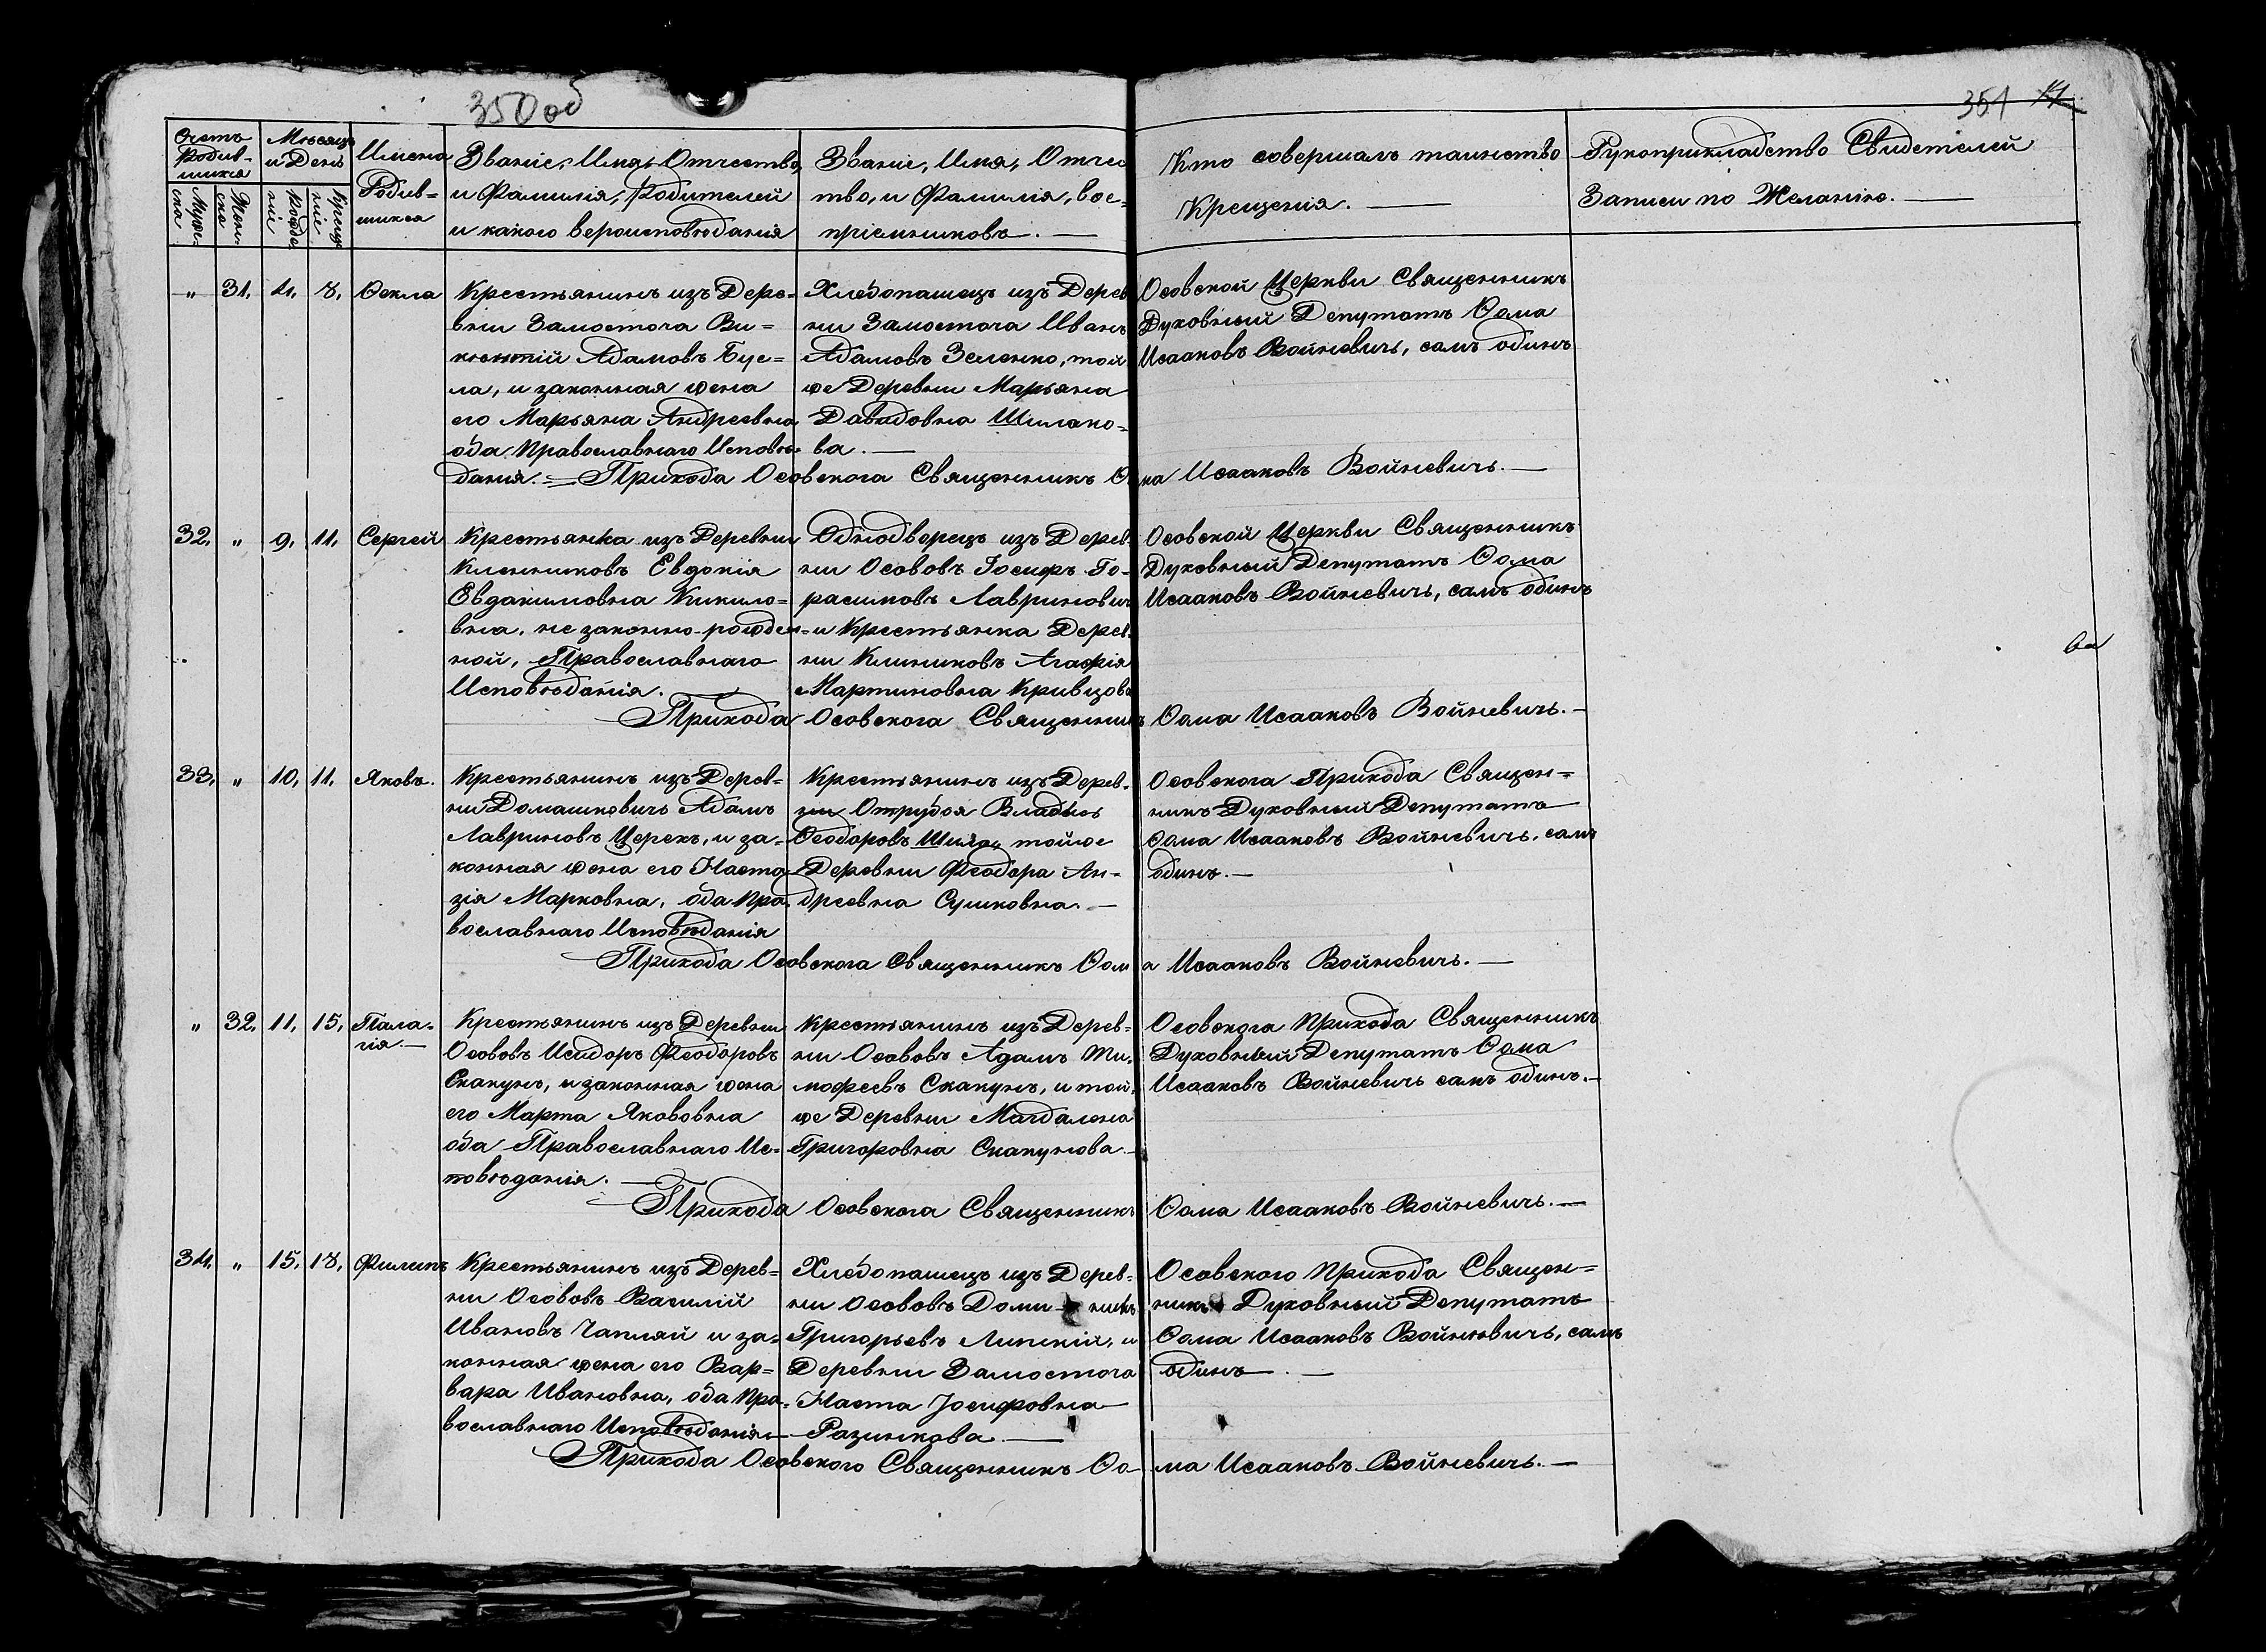 350 об
351 14
Счетъ Родив-шихся
Муже-ска
Жен-ска
Мѣсяцъ и День
Рожде-ніе
Креще-ніе
Имена Родив-шихся
Званіе, Имя, Отчество,
и Фамилія, Родителей
и какого вероисповѣданія
Званіе, Имя, Отчес
тво, и Фамилія, вос-
пріемниковъ. —
Кто совершалъ таинство
Крещенія. —
Рукоприкладство Свидетелей
Записи по Желанію. —
„ 31. 4. 8. Ѳекла
Крестьянинъ изъ Дере-
вни Замосточа Ви-
кентій Адамовъ Бус-
ла, и законная жена
его Марьяна Андреевна
оба Православнаго Исповѣ-
данія. —
Хлебопашецъ изъ Дерев
ни Замосточа Иванъ
Адамовъ Зеленко, той
же Деревни Марьяна
Давыдовна Шилако-
ва. —
Осовской Церкви Священникъ
Духовный Депутатъ Ѳома
Исааковъ Войневичь, самъ одинъ
Прихода Осовскога Священникъ Ѳома Исааковъ Войневичь. —
32. „ 9. 11. Сергей
Крестьянка изъ Деревни
Кленниковъ Евдокія
Евдакимовна Кикило-
вна, не законно-рожден-
ной, Православнаго
Исповѣданія.
Однодворецъ изъ Дерев-
ни Осововъ Іосифъ Га-
расимовъ Лавриновичь
и Крестьянка Дерев.
ни Клиниковъ Агафія
Мартиновна Кривцова
Осовской Церкви Священникъ
Духовный Депутатъ Ѳома
Исааковъ Войневичь, самъ одинъ
Прихода Осовскога Священникъ Ѳома Исааковъ Войневичь. —
33. „ 10. 11. Яковъ.
Крестьянинъ изъ Дерев-
ни Домашковичь Адамъ
Лавриновъ Церехъ, и за-
конная жена его Наста-
зія Марковна, оба Пра-
вославнаго Исповѣданія
Крестьянинъ изъ Дерев-
ни Отрубоя Владысь
Ѳеодоровъ тойже
Деревни Феодора Ан-
дреевна Сушковна. —
Осовскога Прихода Священ-
никъ Духовный Депутатъ
Ѳома Исааковъ Войневичь, самъ
одинъ. —
Прихода Осовскога Священникъ Ѳома Исааковъ Войневичь. —
„ 32. 11. 15. Пала-
гія. —
Крестьянинъ изъ Деревни
Осововъ Исидоръ Феодоровъ
Скакунъ, и законная жена
его Марта Якововна
оба Православнаго Ис-
повѣданія. —
Крестьянинъ изъ Дерев-
ни Осововъ Адамъ Ти-
мофеевъ Скакунъ, и той-
же Деревни Магдалена
Григоровна Скакунова. —
Осовскога Прихода Священникъ
Духовный Депутатъ Ѳома
Исааковъ Войневичь самъ одинъ. —
Прихода Осовскога Священникъ Ѳома Исааковъ Войневичь. —
34. „ 15. 18. Филипъ
Крестьянинъ изъ Дерев-
ни Осововъ Василій
Ивановъ Чапляй и за-
конная жена его Вар-
вара Ивановна, оба Пра-
вославнаго Исповѣданія —
Хлебопашецъ изъ Дерев-
ни Осововъ Доми-никъ
Григорьевъ Липскій, и
Деревни Замосточа
Наста Іосифовна
Разинкова. —
Осовского Прихода Священ-
никъ Духовный Депутатъ
Ѳома Исааковъ Войневичь, самъ
одинъ. —
Прихода Осовского Священникъ Ѳо-ма Исааковъ Войневичь. —